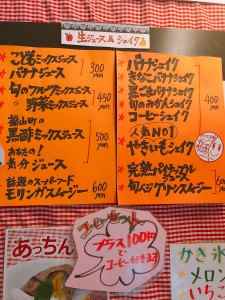 生ジュース&シェイク
こどもミックスジュース
バナナジュース
300yen
旬のフルーツミックスジュース
野菜ミックスジュース
450yen
黒酢ミックスジュース
あなたの!
気分ジュース
500yen
話題のスーパーフード
モリンガスムージー 600yen
バナナシェイク
きなこバナナシェイク
黒ごまバナナシェイク
旬のみかんシェイク
コーヒーシェイク
400yen
人気NO1
やきいもシェイク
完熟パイナップル
旬のグリーンスムージー
コーヒーセット
プラス100円で
コーヒー付きます
あっちん
かき氷
メロン
いちご